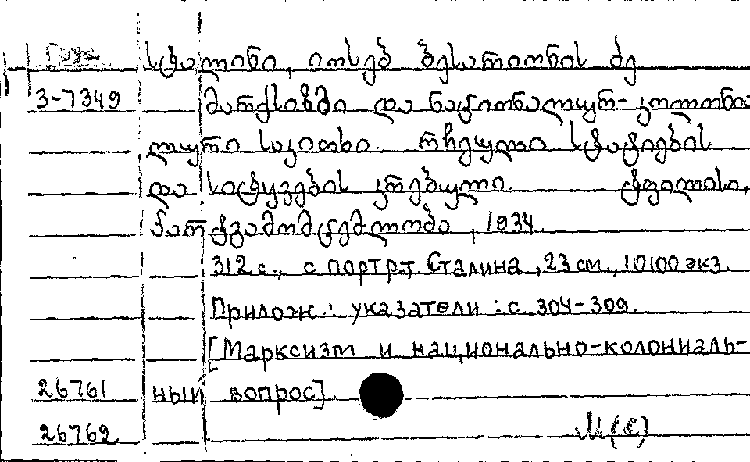 სტალინი, იოსებ ბესარიონის ძე
3-7349 მარქსიზმი და ნაციონალურ-კოლონია
ლური საკითხი. რჩეული სტატიების
და სიტყვების კრებული. ტფილისი,
პარტგამომცემლობა, 1934.
312 с., с портр. Сталина, 23 см., 10100 экз.
Прилож.: указатели: с. 304-309.
[Марксизм и национально-колониаль-
26761 ный вопрос].
26762 М(С)